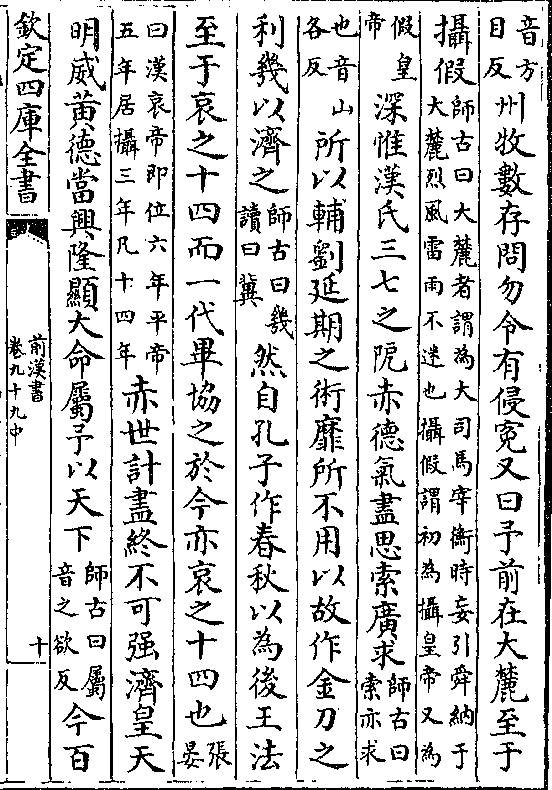 音方
目反
州牧數存問勿令有侵寃又曰予前在大麓至于
攝假
師古曰大麓者謂為大司馬宰衡時妄引舜納于
大麓烈風雷雨不迷也攝假謂初為攝皇帝又為
假皇
帝
深惟漢氏三七之阸赤德氣盡思索廣求
師古曰
索亦求
也音山
各反
所以輔劉延期之術靡所不用以故作金刀之
利幾以濟之
師古曰幾
讀曰冀
然自孔子作春秋以為後王法
至于哀之十四而一代畢協之於今亦哀之十四也
張
晏
曰漢哀帝即位六年平帝
五年居攝三年凡十四年
赤世計盡終不可强濟皇天
明威黄德當興隆顯大命屬予以天下
師古曰屬
音之欲反
今百
欽定四庫全書
前漢書
卷九十九中
十